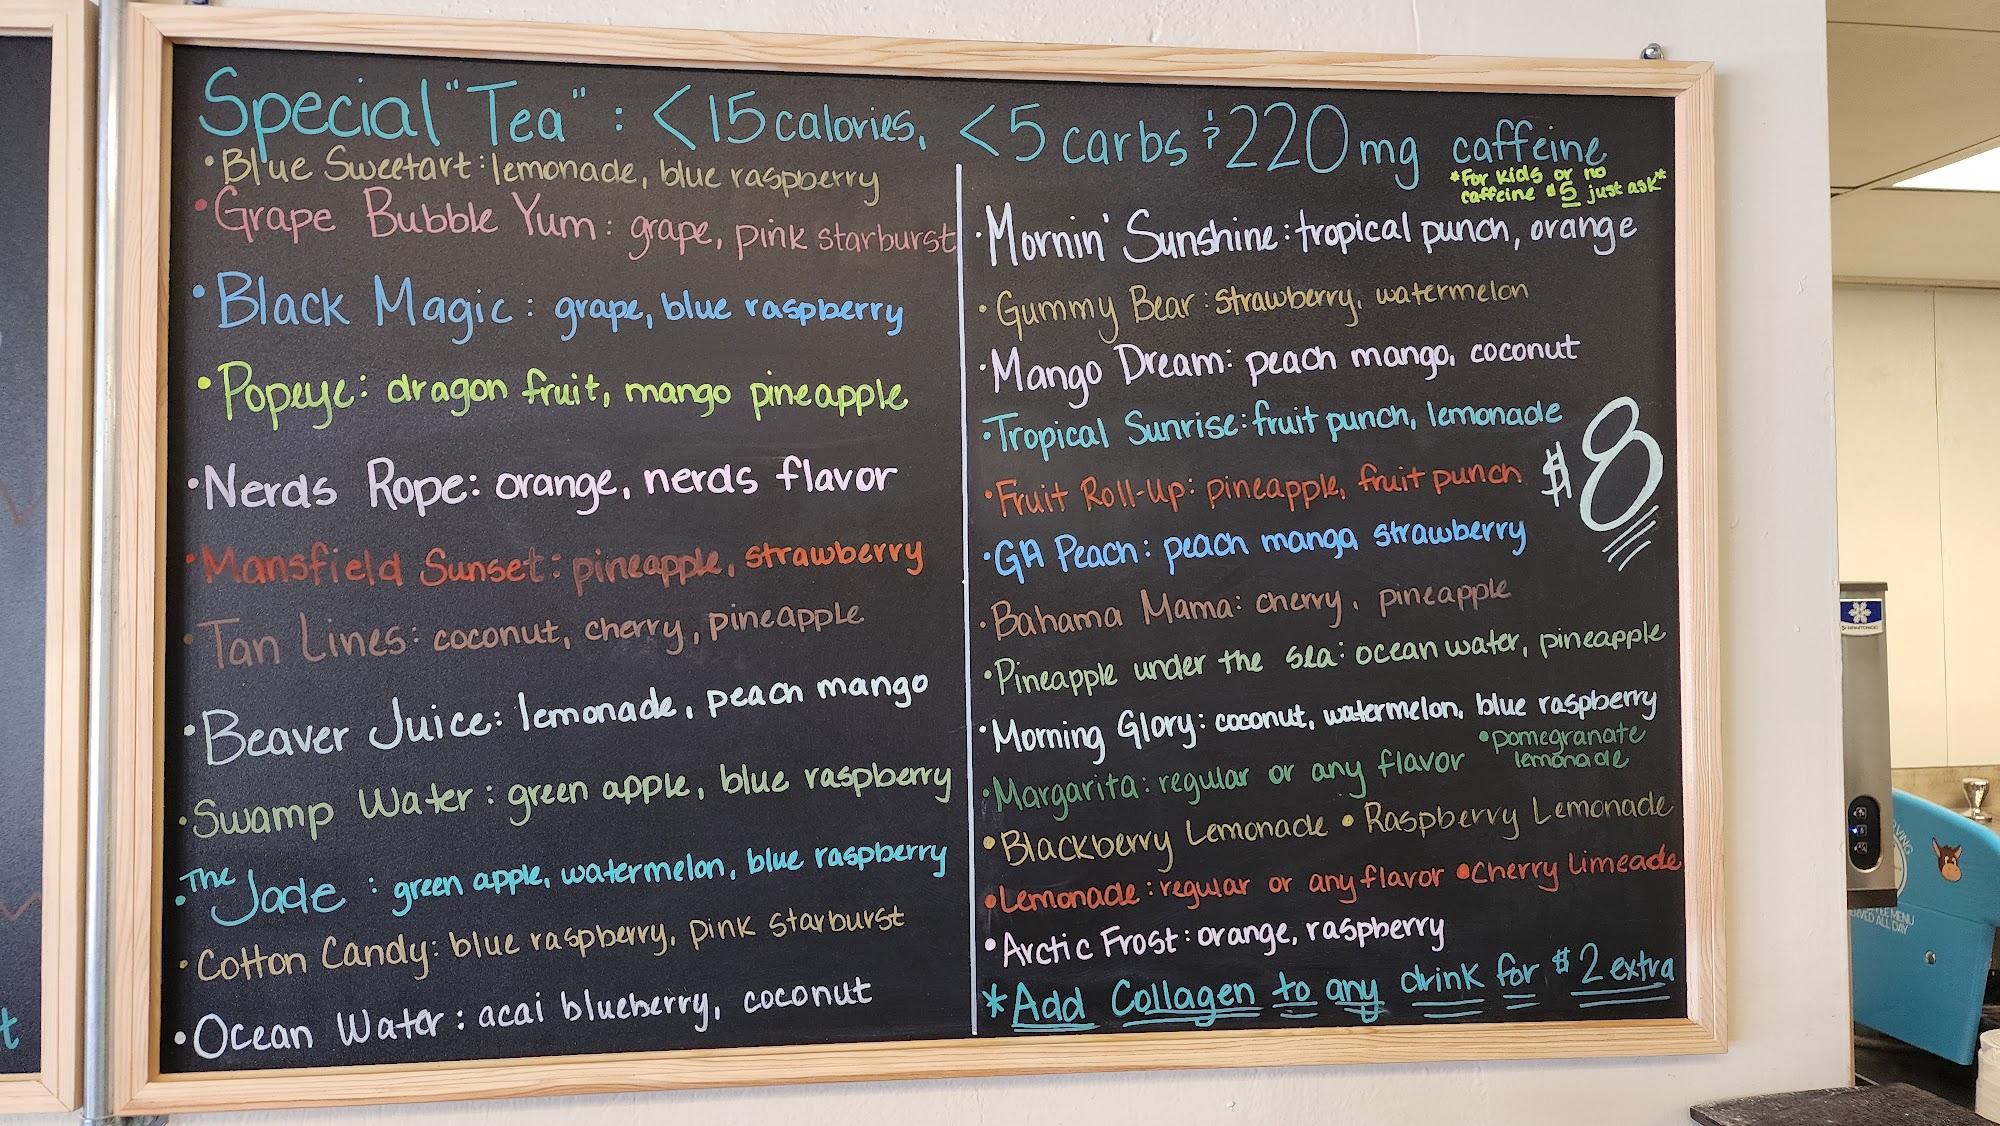 Special "Tea" : <15 calories, <5 carbs & 220 mg caffeine
*For kids or no
caffeine $5 just ask*
• Blue Sweetart: lemonade, blue raspberry
• Grape Bubble Yum: grape, pink starburst
• Black Magic: grape, blue raspberry
• Popeye: dragon fruit, mango pineapple
• Nerds Rope: orange, nerds flavor
• Mansfield Sunset: pineapple, strawberry
• Tan Lines: coconut, cherry, pineapple
• Beaver Juice: lemonade, peach mango
• Swamp Water: green apple, blue raspberry
• The Jade: green apple, watermelon, blue raspberry
• Cotton Candy: blue raspberry, pink starburst
• Ocean Water: acai blueberry, coconut
• Mornin' Sunshine: tropical punch, orange
• Gummy Bear: strawberry, watermelon
• Mango Dream: peach mango, coconut
• Tropical Sunrise: fruit punch, lemonade
• Fruit Roll-Up: pineapple, fruit punch
$8
• GA Peach: peach mango, strawberry
• Bahama Mama: cherry, pineapple
• Pineapple under the sea: ocean water, pineapple
• Morning Glory: coconut, watermelon, blue raspberry
• Margarita: regular or any flavor
• pomegranate
lemonade
• Blackberry Lemonade • Raspberry Lemonade
• Lemonade: regular or any flavor • Cherry Limeade
• Arctic Frost: orange, raspberry
*Add Collagen to any drink for $2 extra
MENU
ALL DAY
t